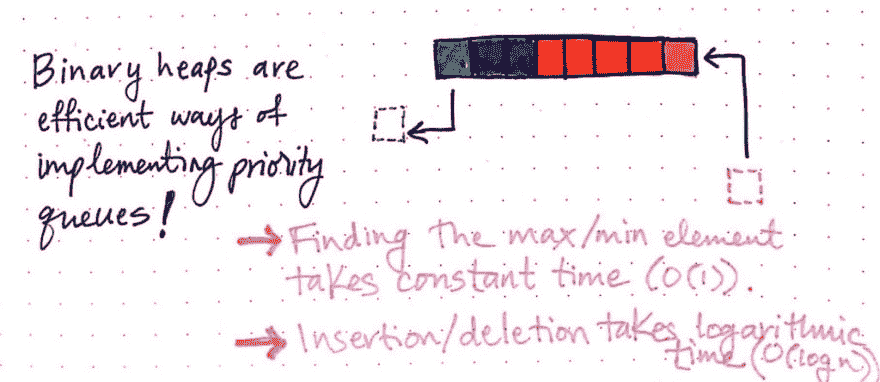 Binary heaps are
efficient ways of
implementing priority
queues!
→ Finding the max/min element
takes constant time (O(1)).
→ Insertion/deletion takes logarithmic
time (O(logn))